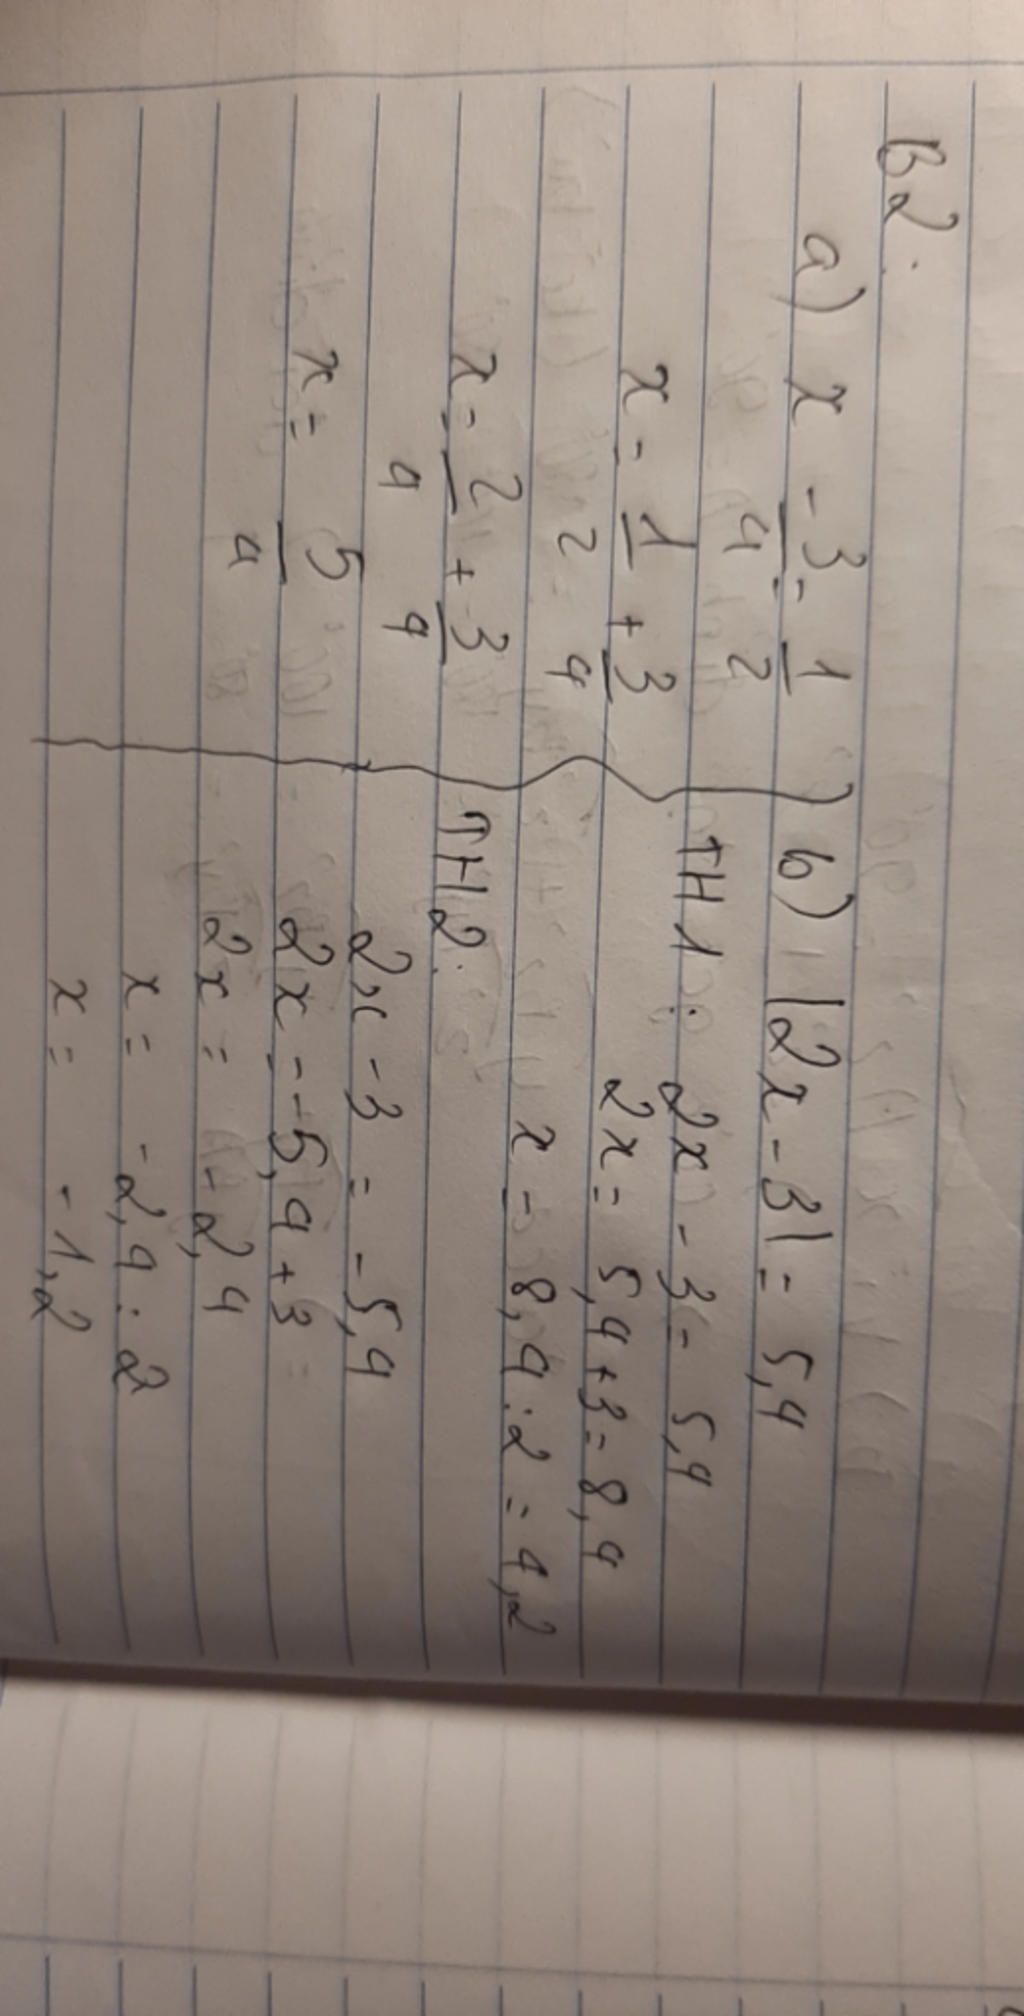 B2:
a) x - 3/4 = 1/2
x = 1/2 + 3/4
x = 2/4 + 3/4
x = 5/4
b) |2x - 3| = 5,4
TH1: 2x - 3 = 5,4
2x = 5,4 + 3 = 8,4
x = 8,4 : 2 = 4,2
TH2:
2x - 3 = -5,4
2x = -5,4 + 3
2x = -2,4
x = -2,4 : 2
x = -1,2